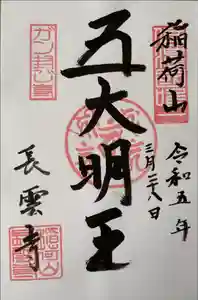 稲荷山
令和五年
三月二十八日
五大明王
長雲寺